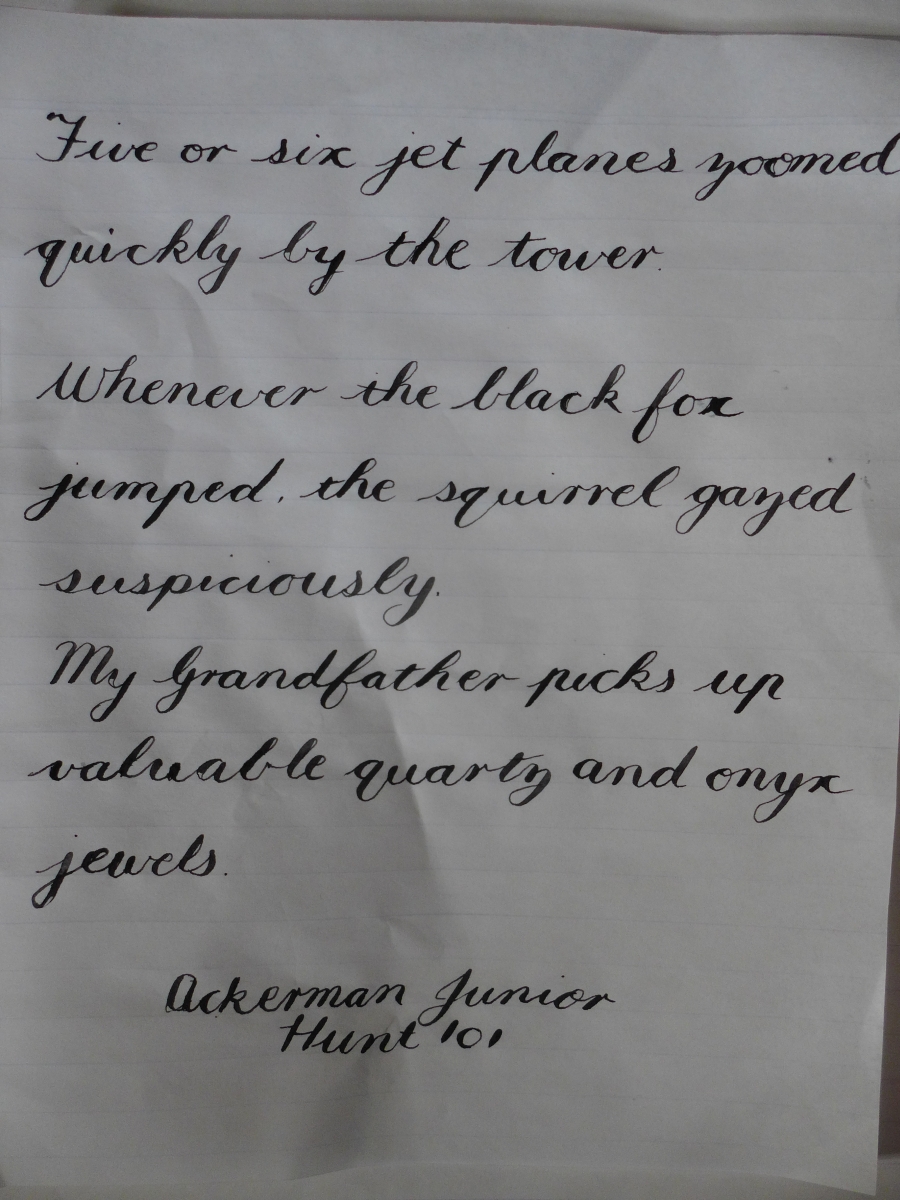 Five or six jet planes zoomed
quickly by the tower.
Whenever the black fox
jumped, the squirrel gazed
suspiciously.
My Grandfather picks up
valuable quartz and onyx
jewels.
Ackerman Junior
Hunt 101